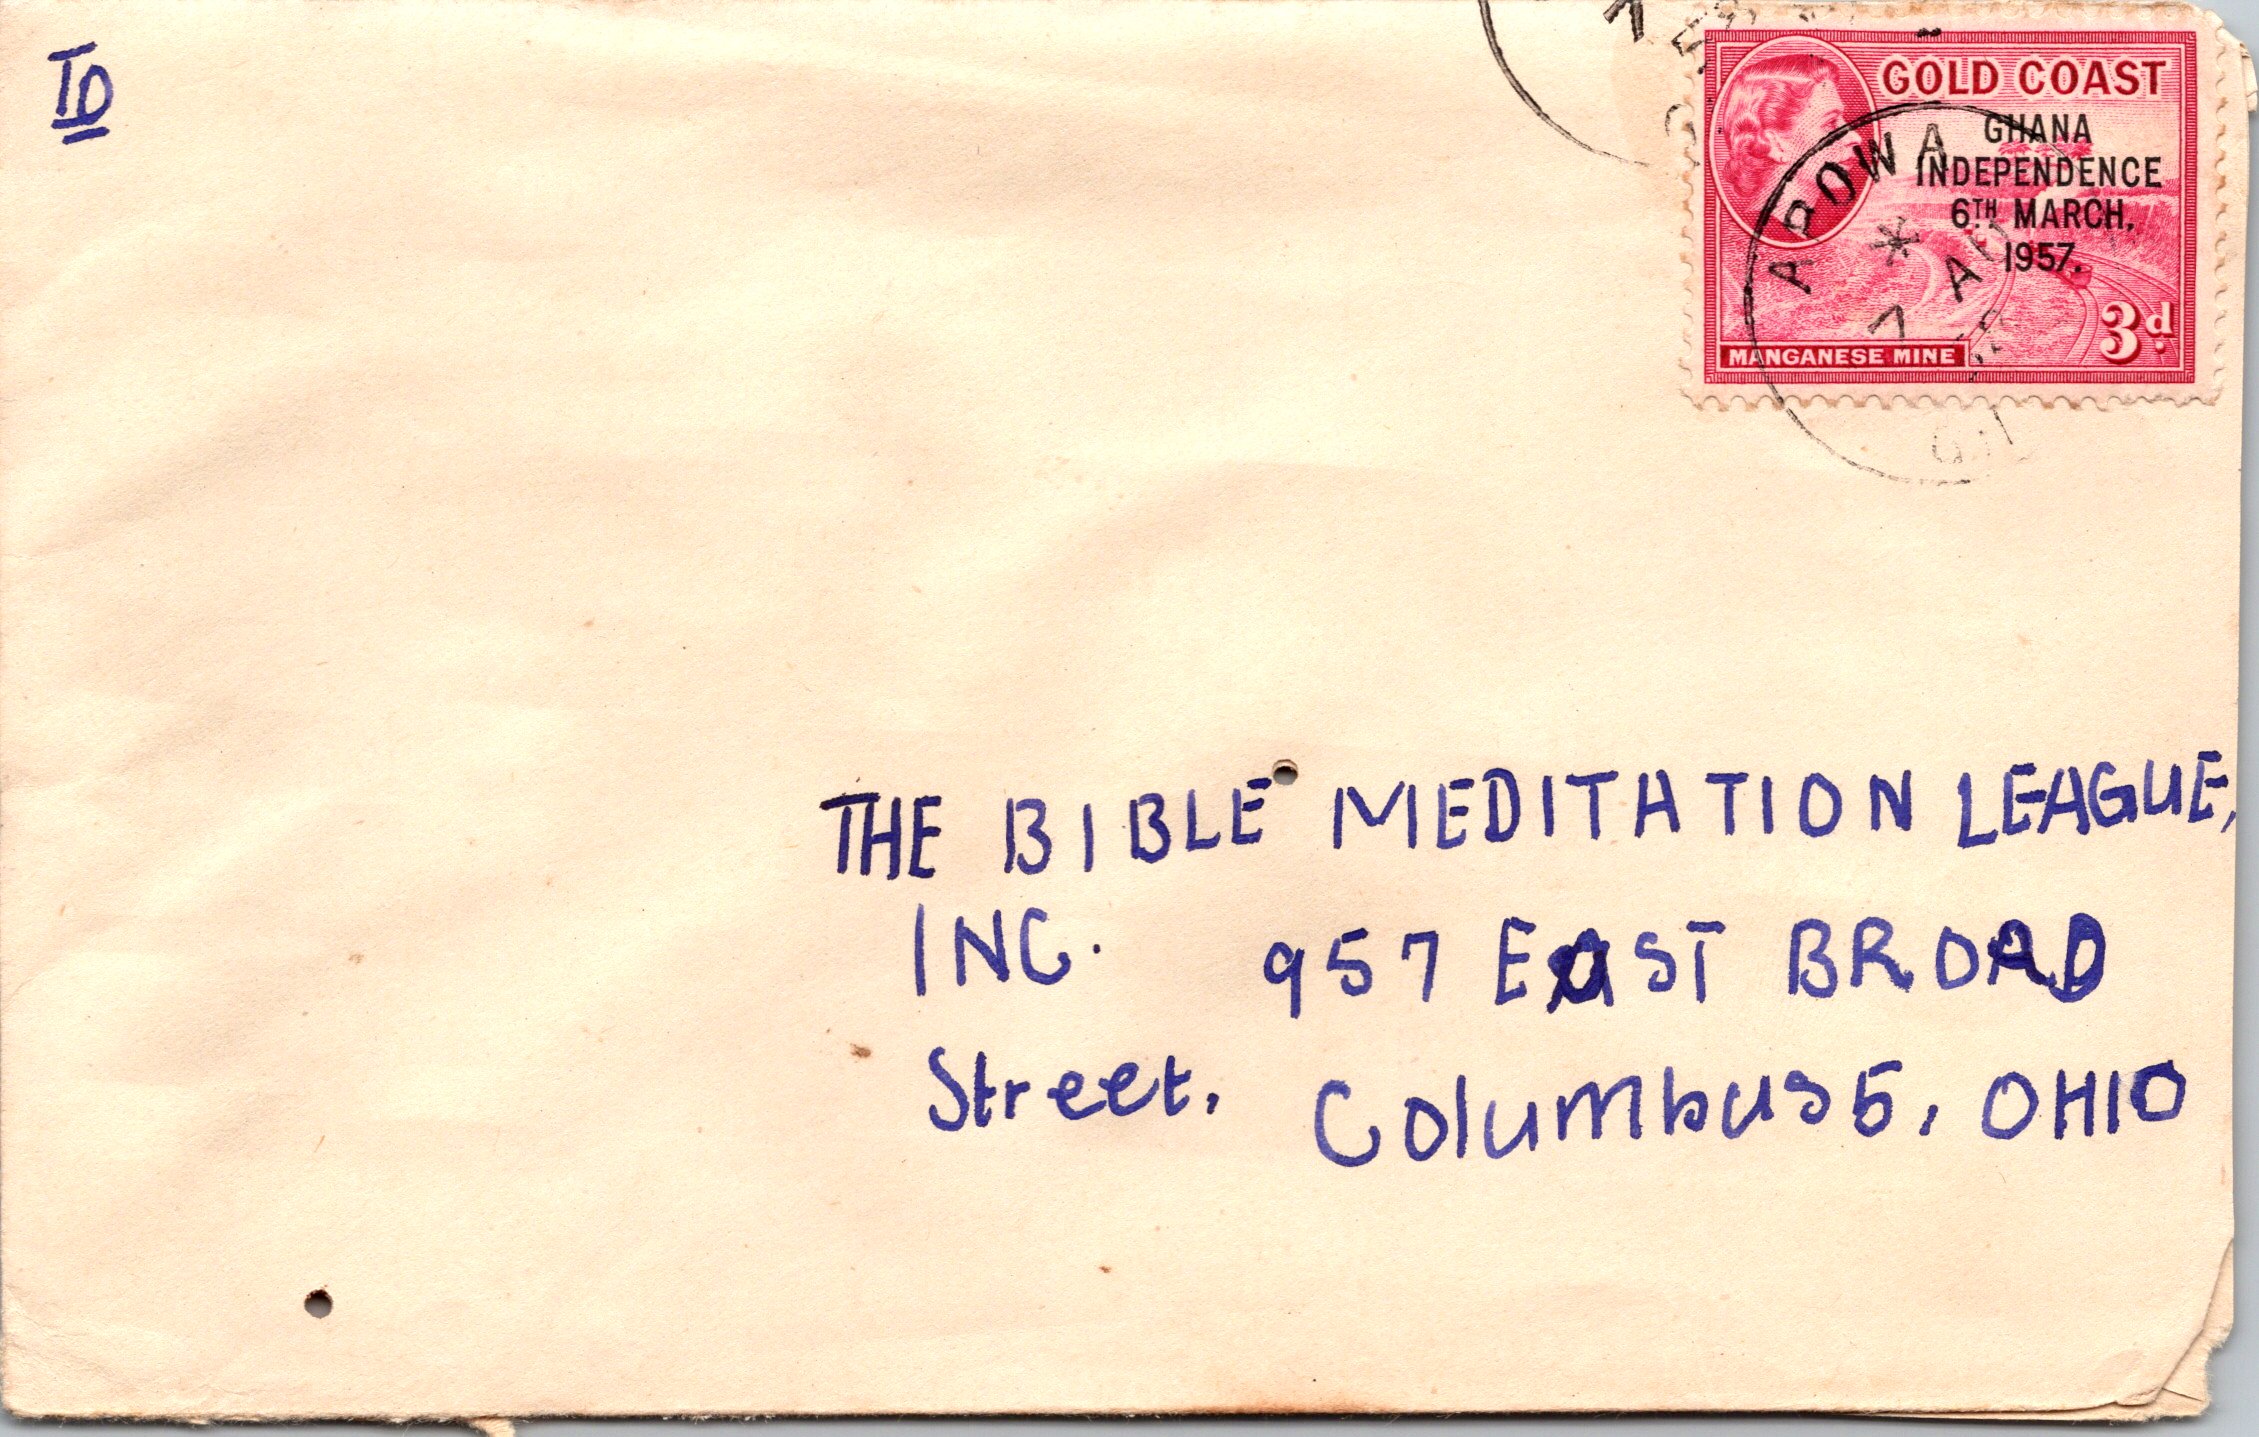 To
GOLD COAST
GHANA
INDEPENDENCE
6TH MARCH,
1957.
3d
MANGANESE MINE
APOWA
7 AU
THE BIBLE MEDITATION LEAGUE,
INC. 957 EAST BROAD
Street, Columbus 5, OHIO